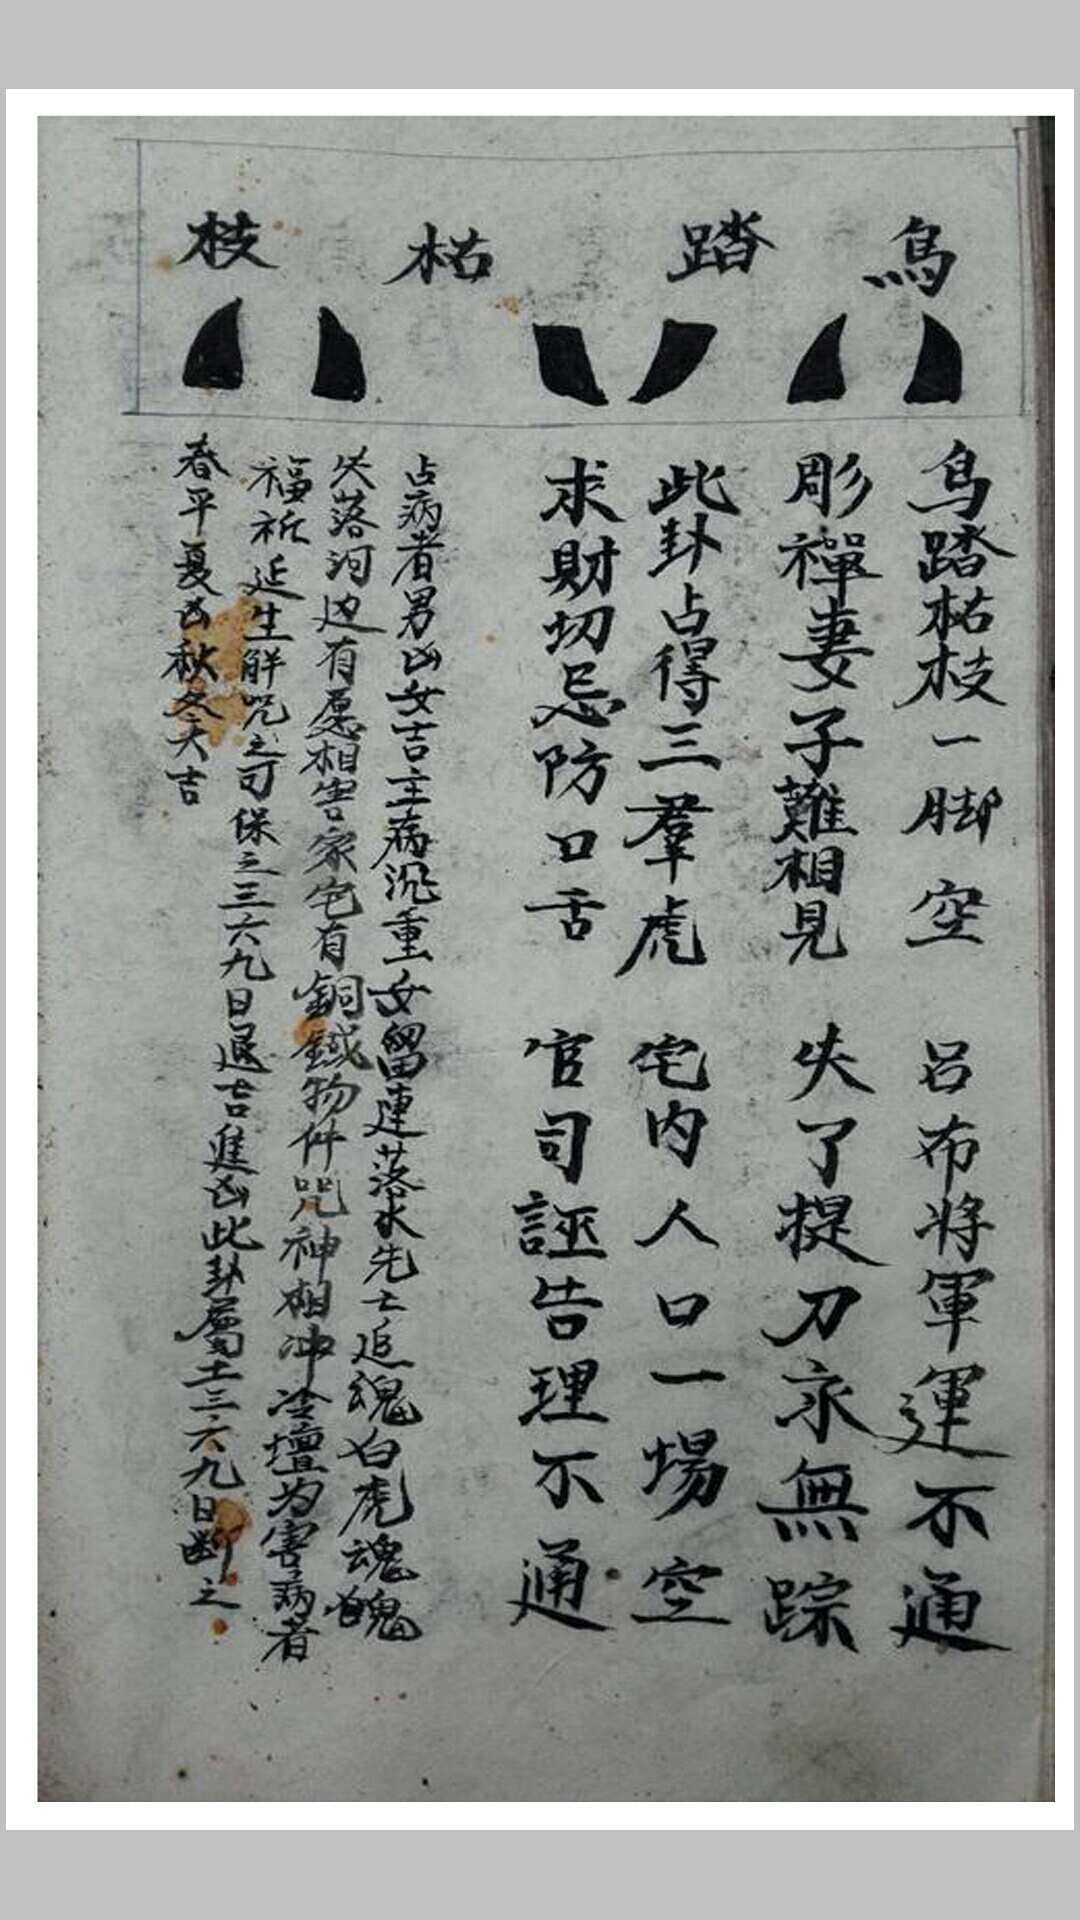 鳥踏枯枝
鳥踏枯枝一脚空 呂布將軍運不通
彫禪妻子難相見 失了提刀永無踪
此卦占得三羣虎 宅内人口一場空
求財切忌防口舌 官司誣告理不通
占病者男凶女吉主病沉重女留連落水先亡追魂白虎魂魄
失落河边有愿相害家宅有銅鉞物件咒神相冲冷壇为害病者
福祈延生解咒之可保之三六九日退吉進凶此卦屬土三六九日断之
春平夏凶秋冬大吉